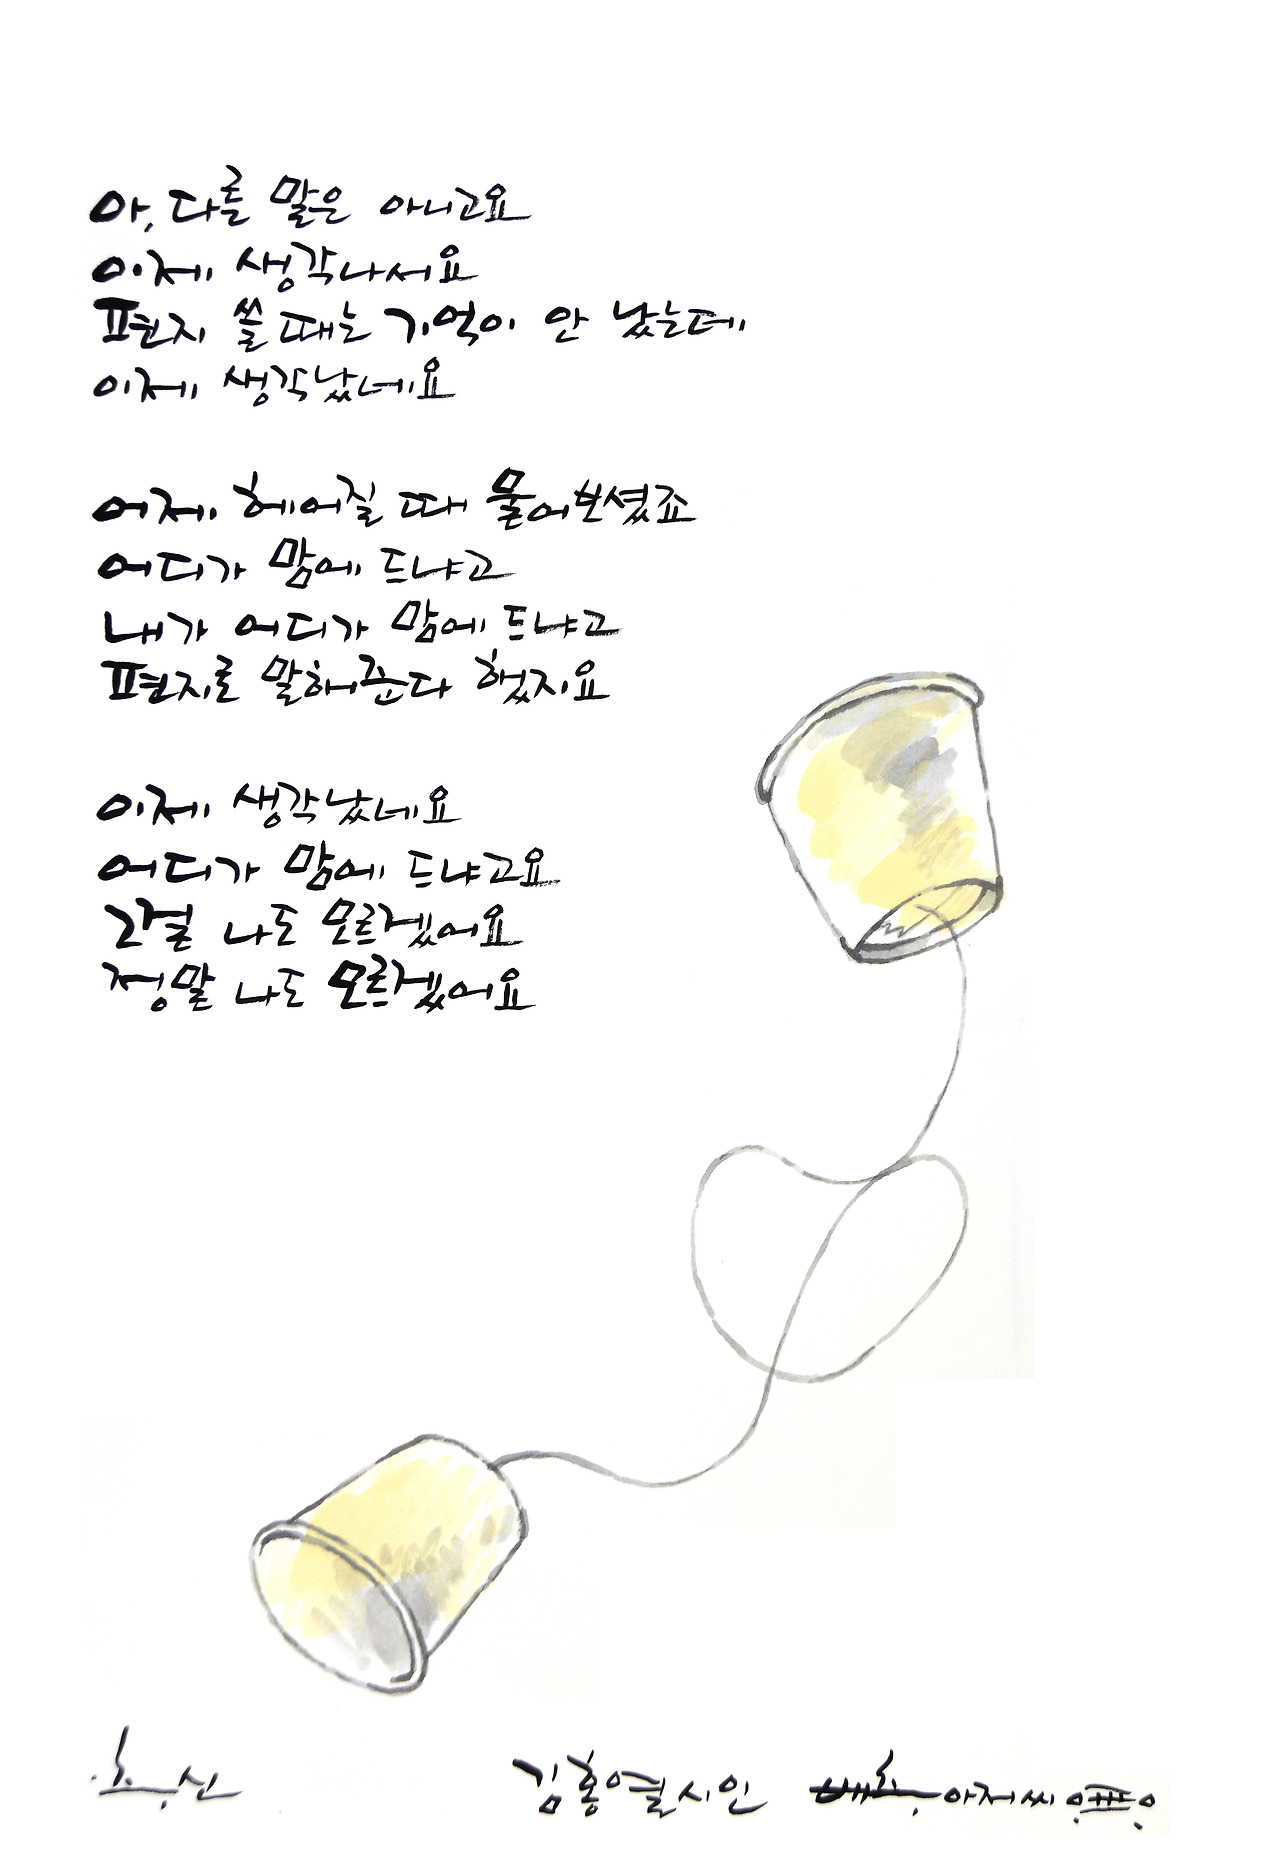 아, 다름 말은 아니고요
이제 생각나서요
편지 쓸 때는 기억이 안 났는데
이제 생각났네요
어제 헤어질 때 물어보셨죠
어디가 맘에 드냐고
내가 어디가 맘에 드냐고
편지로 말해준다 했지요
이제 생각났네요
어디가 맘에 드냐고요
그걸 나도 모르겠어요
정말 나도 모르겠어요
추신
김홍열시인
아저씨